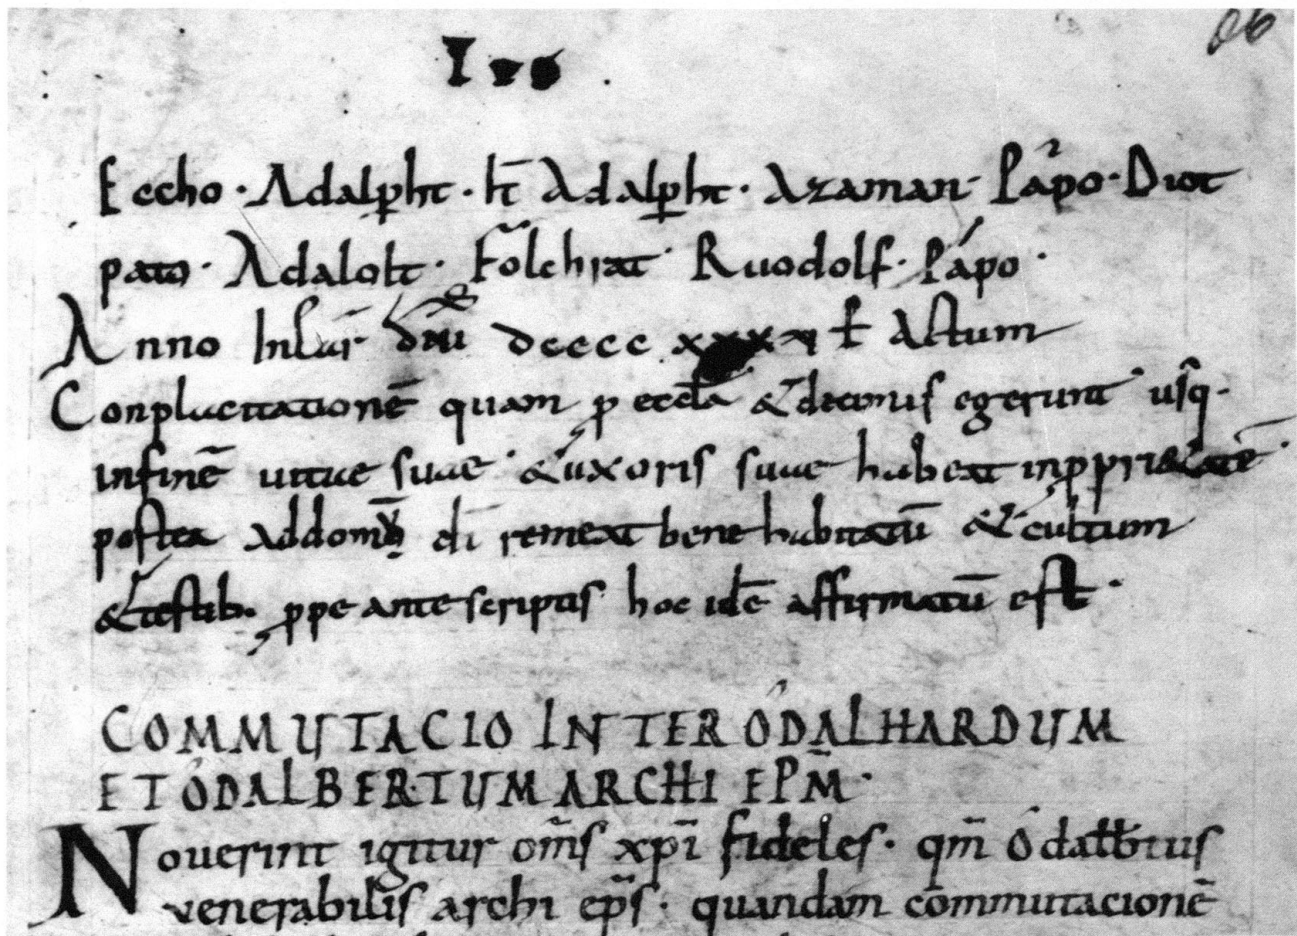 Eccho · Adalp̄ht · It̄ Adalp̄ht · Azaman · Pápo · Diot
pato · Adalolt · Folchrat · Ruodolf · Pápo ·
Anno Incar̄ dn̄i dcccc Actum
Conplacitationē quam p eccl̄a &decimis egerunt usq·
infinē uitae suae &uxoris suae habeat inpropri&atē
postea addom̄ dī remeat bene habitatū &cultum
&testib· prope ante scriptis hoc idē affirmatū est ·
COMMUTACIO INTER ÓDALHARDUM
ET ÓDALBERTUM ARCHI EPM̄ ·
Nouerint igitur om̄s xp̄i fideles · qm̄ Ódalb̄tus
venerabilis archi ep̄s · quandam cōmmutacionē